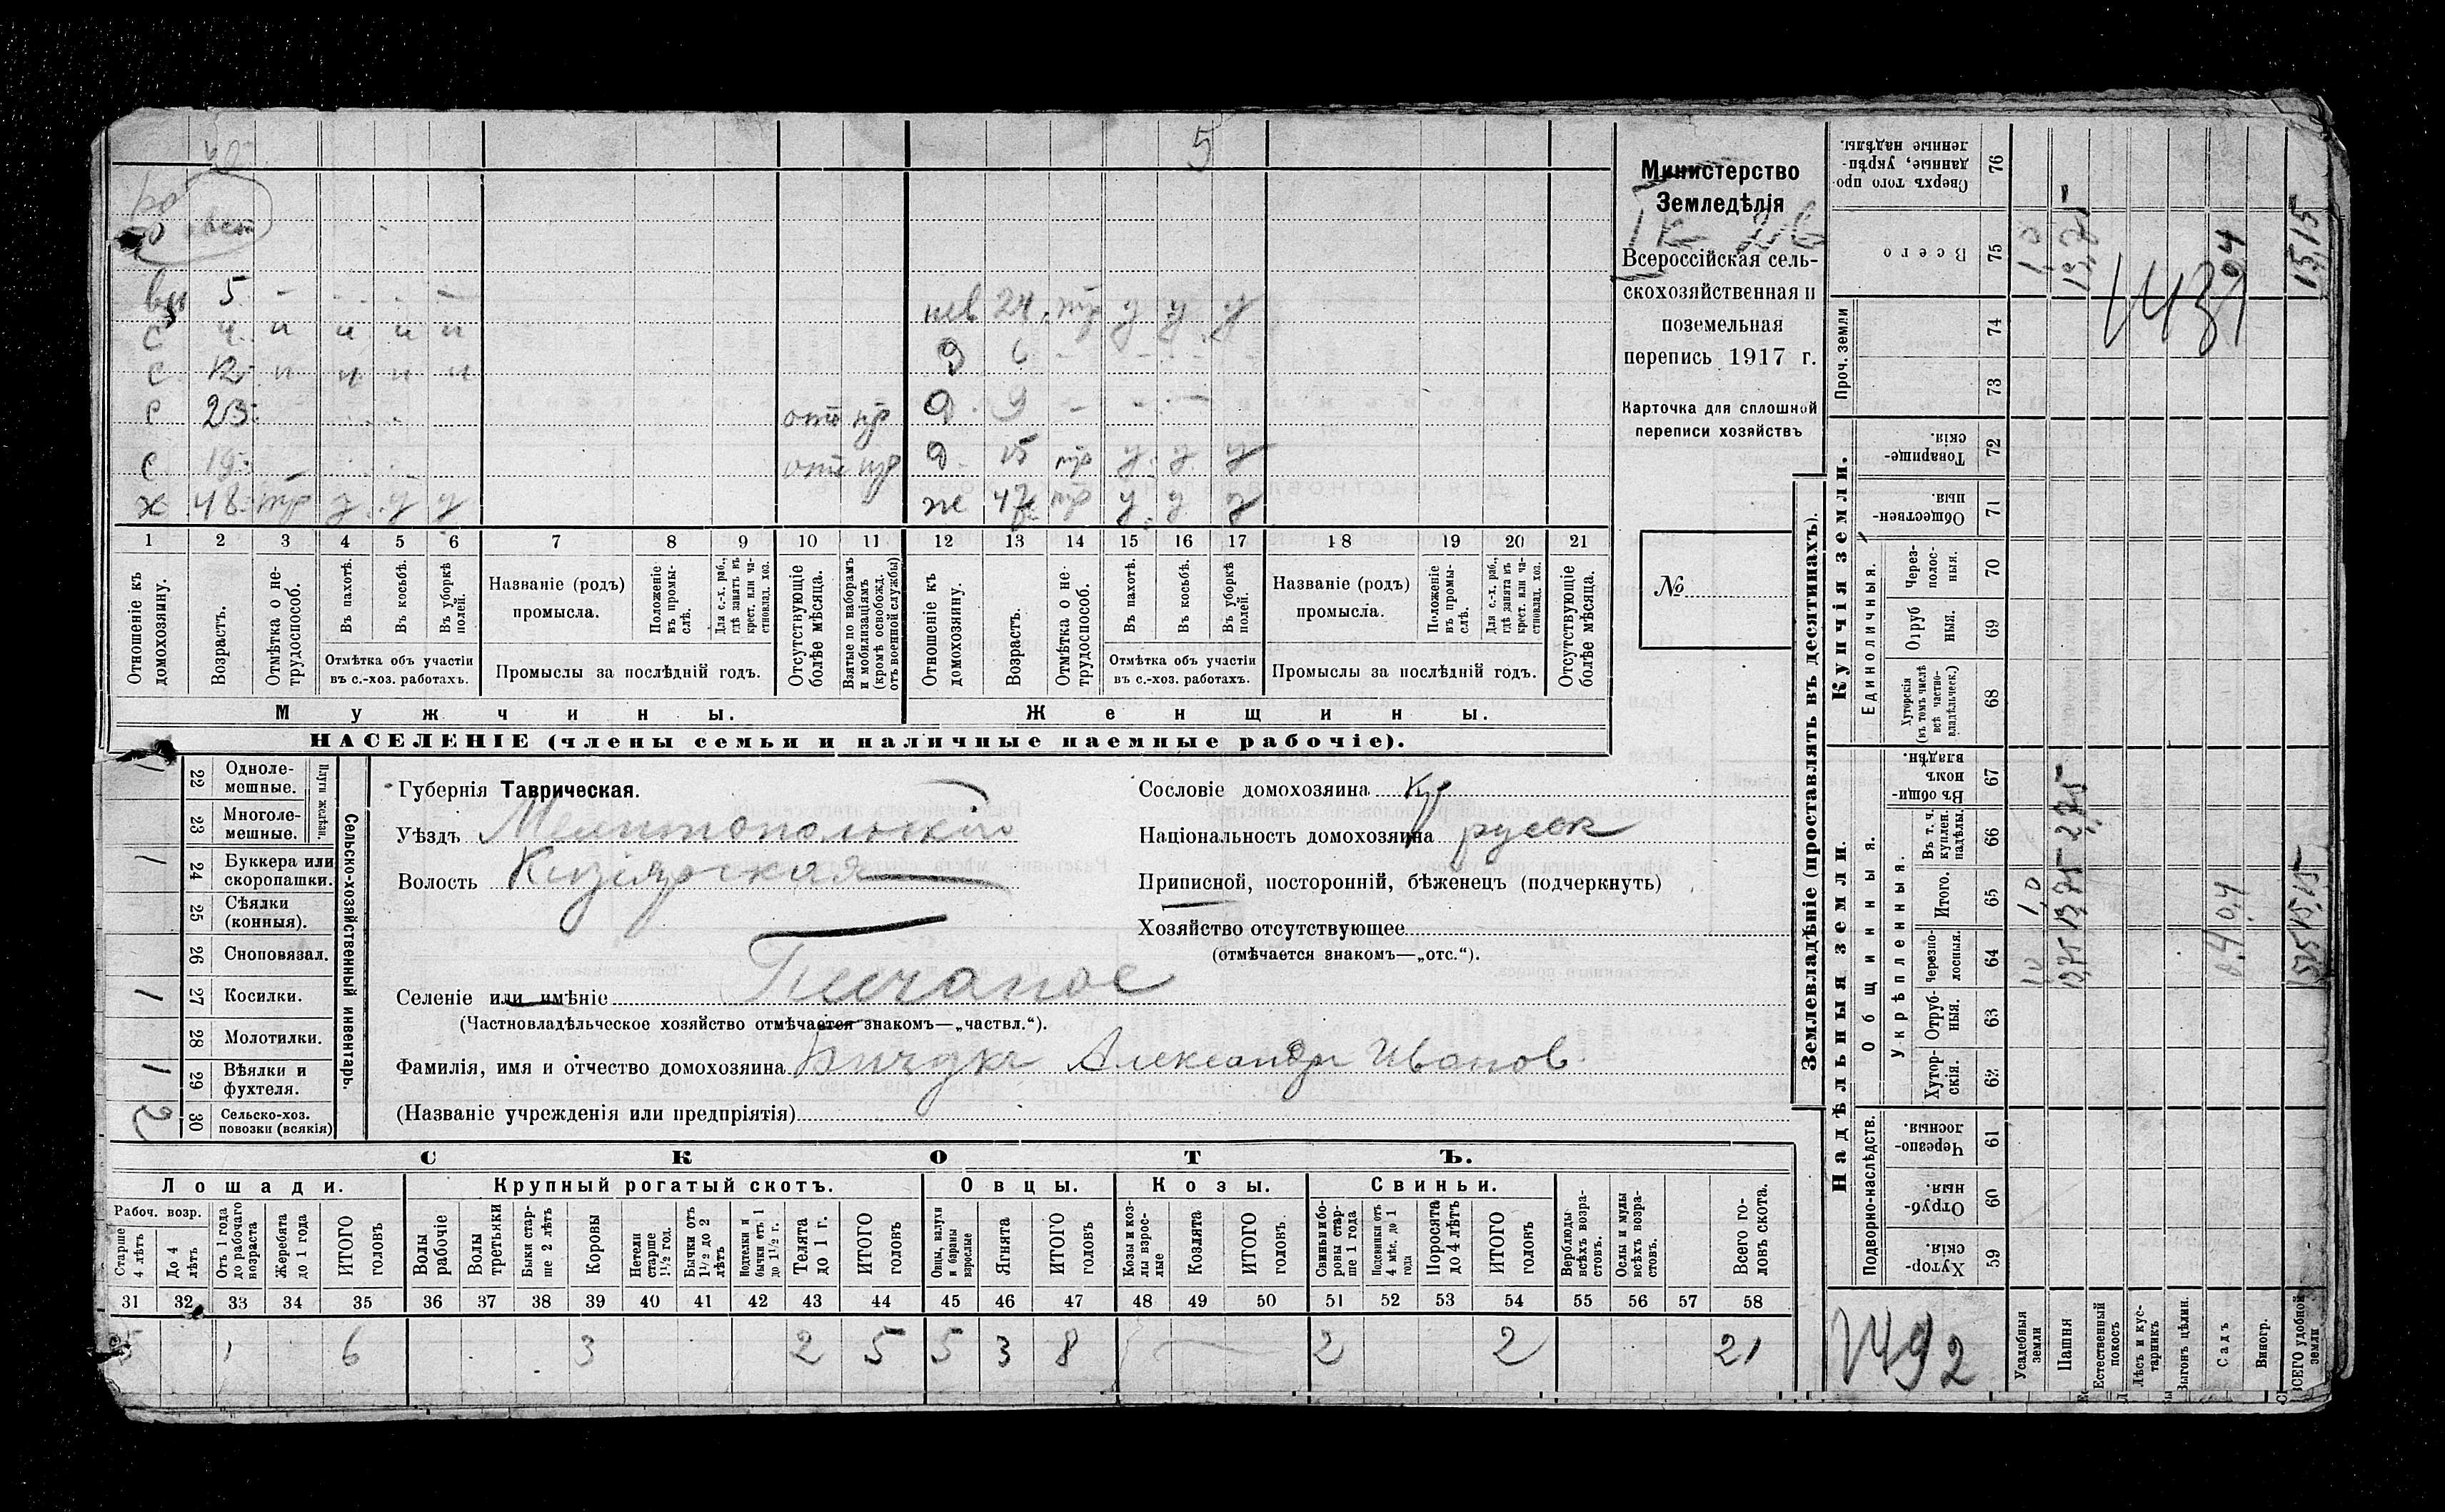 5
Министерство
Земледѣлія
Всероссійская сель-
скохозяйственная и
поземельная
перепись 1917 г.
Карточка для сплошной
переписи хозяйствъ
№
5 - - - - -
с ч и и и и
с 12 и и и и
с 23 отп пр
с 19 - отп пр
х 48 тр у у у
нев 24 тр у у у
д 6 -
д 9 - - -
д 15 тр у у у
ж 47 тр у у у
1 2 3 4 5 6 7 8 9 10 11 12 13 14 15 16 17 18 19 20 21
Отношеніе къ домохозяину.
Возрастъ.
Отмѣтка о не-трудоспособ.
Въ пахотѣ.
Въ косьбѣ.
Въ уборкѣ полей.
Отмѣтка объ участіи
въ с.-хоз. работахъ.
Названіе (родъ)
промысла.
Положеніе въ промы-слѣ.
Для с.-х. раб., гдѣ занятъ въ крест. или ча-стновлад. хоз.
Промыслы за послѣдній годъ.
Отсутствующіе болѣе мѣсяца.
Взятые по наборамъ и мобилизаціямъ (кромѣ освобожд. отъ военной службы)
Отношеніе къ домохозяину.
Возрастъ.
Отмѣтка о не трудоспособ.
Въ пахотѣ.
Въ косьбѣ.
Въ уборкѣ полей.
Отмѣтка объ участіи
въ с.-хоз. работахъ.
Названіе (родъ)
промысла.
Положеніе въ промы-слѣ.
Для с.-х. раб., гдѣ занята въ крест. или ча-стновлад. хоз.
Промыслы за послѣдній годъ.
Отсутствующіе болѣе мѣсяца.
Мужчины.
Женщины.
НАСЕЛЕНІЕ (члены семьи и наличные наемные рабочіе).
Сельско-хозяйственный инвентарь.
Плуги желѣзн.
1 22 Одноле-мешные.
23 Многоле-мешные.
1 24 Буккера или скоропашки.
25 Сѣялки (конныя).
26 Сноповязал.
1 27 Косилки.
28 Молотилки.
1 29 Вѣялки и фухтеля.
2 30 Сельско-хоз. повозки (всякія)
Губернія Таврическая.
Уѣздъ Мелитопольскій
Волость Кизіярская
Селеніе или имѣніе Песчаное
(Частновладѣльческое хозяйство отмѣчается знакомъ—„частвл.“).
Фамилія, имя и отчество домохозяина Бичукъ Александръ Иванов
(Названіе учрежденія или предпріятія)
Сословіе домохозяина кр
Національность домохозяина русск
Приписной, посторонній, бѣженец (подчеркнуть)
Хозяйство отсутствующее
(отмѣчается знакомъ—„отс.“).
СКОТЪ.
Лошади. Крупный рогатый скотъ. Овцы. Козы. Свиньи.
Рабоч. возр.
Старше 4 лѣтъ
До 4 лѣтъ
Отъ 1 года до рабочаго возраста
Жеребята до 1 года
ИТОГО головъ
Волы рабочіе
Волы третьяки
Быки стар-ше 2 лѣтъ
Коровы
Нетели старше 1½ год.
Бычки отъ 1½ до 2 лѣтъ
Нетелки и бычки отъ 1 до 1½ г.
Телята до 1 г.
ИТОГО головъ
Овцы, валухи и бараны взрослые
Ягнята
ИТОГО головъ
Козы и коз-лы взрос-лые
Козлята
ИТОГО головъ
Свиньи и бо-ровы стар-ше 1 года
Подсвинки отъ 4 мѣс. до 1 года
Поросята до 4 лѣтъ
ИТОГО головъ
Верблюды всѣхъ возра-стовъ.
Ослы и мулы всѣхъ возра-стовъ.
Всего го-ловъ скота.
31 32 33 34 35 36 37 38 39 40 41 42 43 44 45 46 47 48 49 50 51 52 53 54 55 56 57 58
5 1 6 3 2 5 5 3 8 2 2 21
Землевладѣніе (проставлять въ десятинахъ).
Надѣльныя земли.
Купчія земли.
Подворно-наслѣдств.
Общинныя.
Укрѣпленныя.
Единоличныя.
Проч. земли
Хутор-скія. 59
Отруб-ныя. 60
Черезпо-лосныя. 61
Хутор-скія. 62
Отруб-ныя. 63
Черезпо-лосныя. 64
Итого. 65
Въ т. ч. куплен. надѣлы. 66
Въ общи-номъ владѣн. 67
Хуторскія (въ томъ числѣ всѣ частно-владѣльческ.) 68
Отруб ныя. 69
Через-полос-ныя. 70
Обществен-ныя. 71
Товарище-скія. 72
73
74
Всего 75
Сверхъ того про-данные, укрѣп-ленные надѣлы. 76
Усадебныя земли 1,0 1,0 1,0
Пашня 13,75 13,75 275 13,75
Естественный покосъ
Лѣсъ и кус-тарникъ
Выгонъ цѣлин.
Садъ 0,4 0,4 0,4
Виногр.
ВСЕГО удобной земли 15,15 15,15 15,15
1439
1492